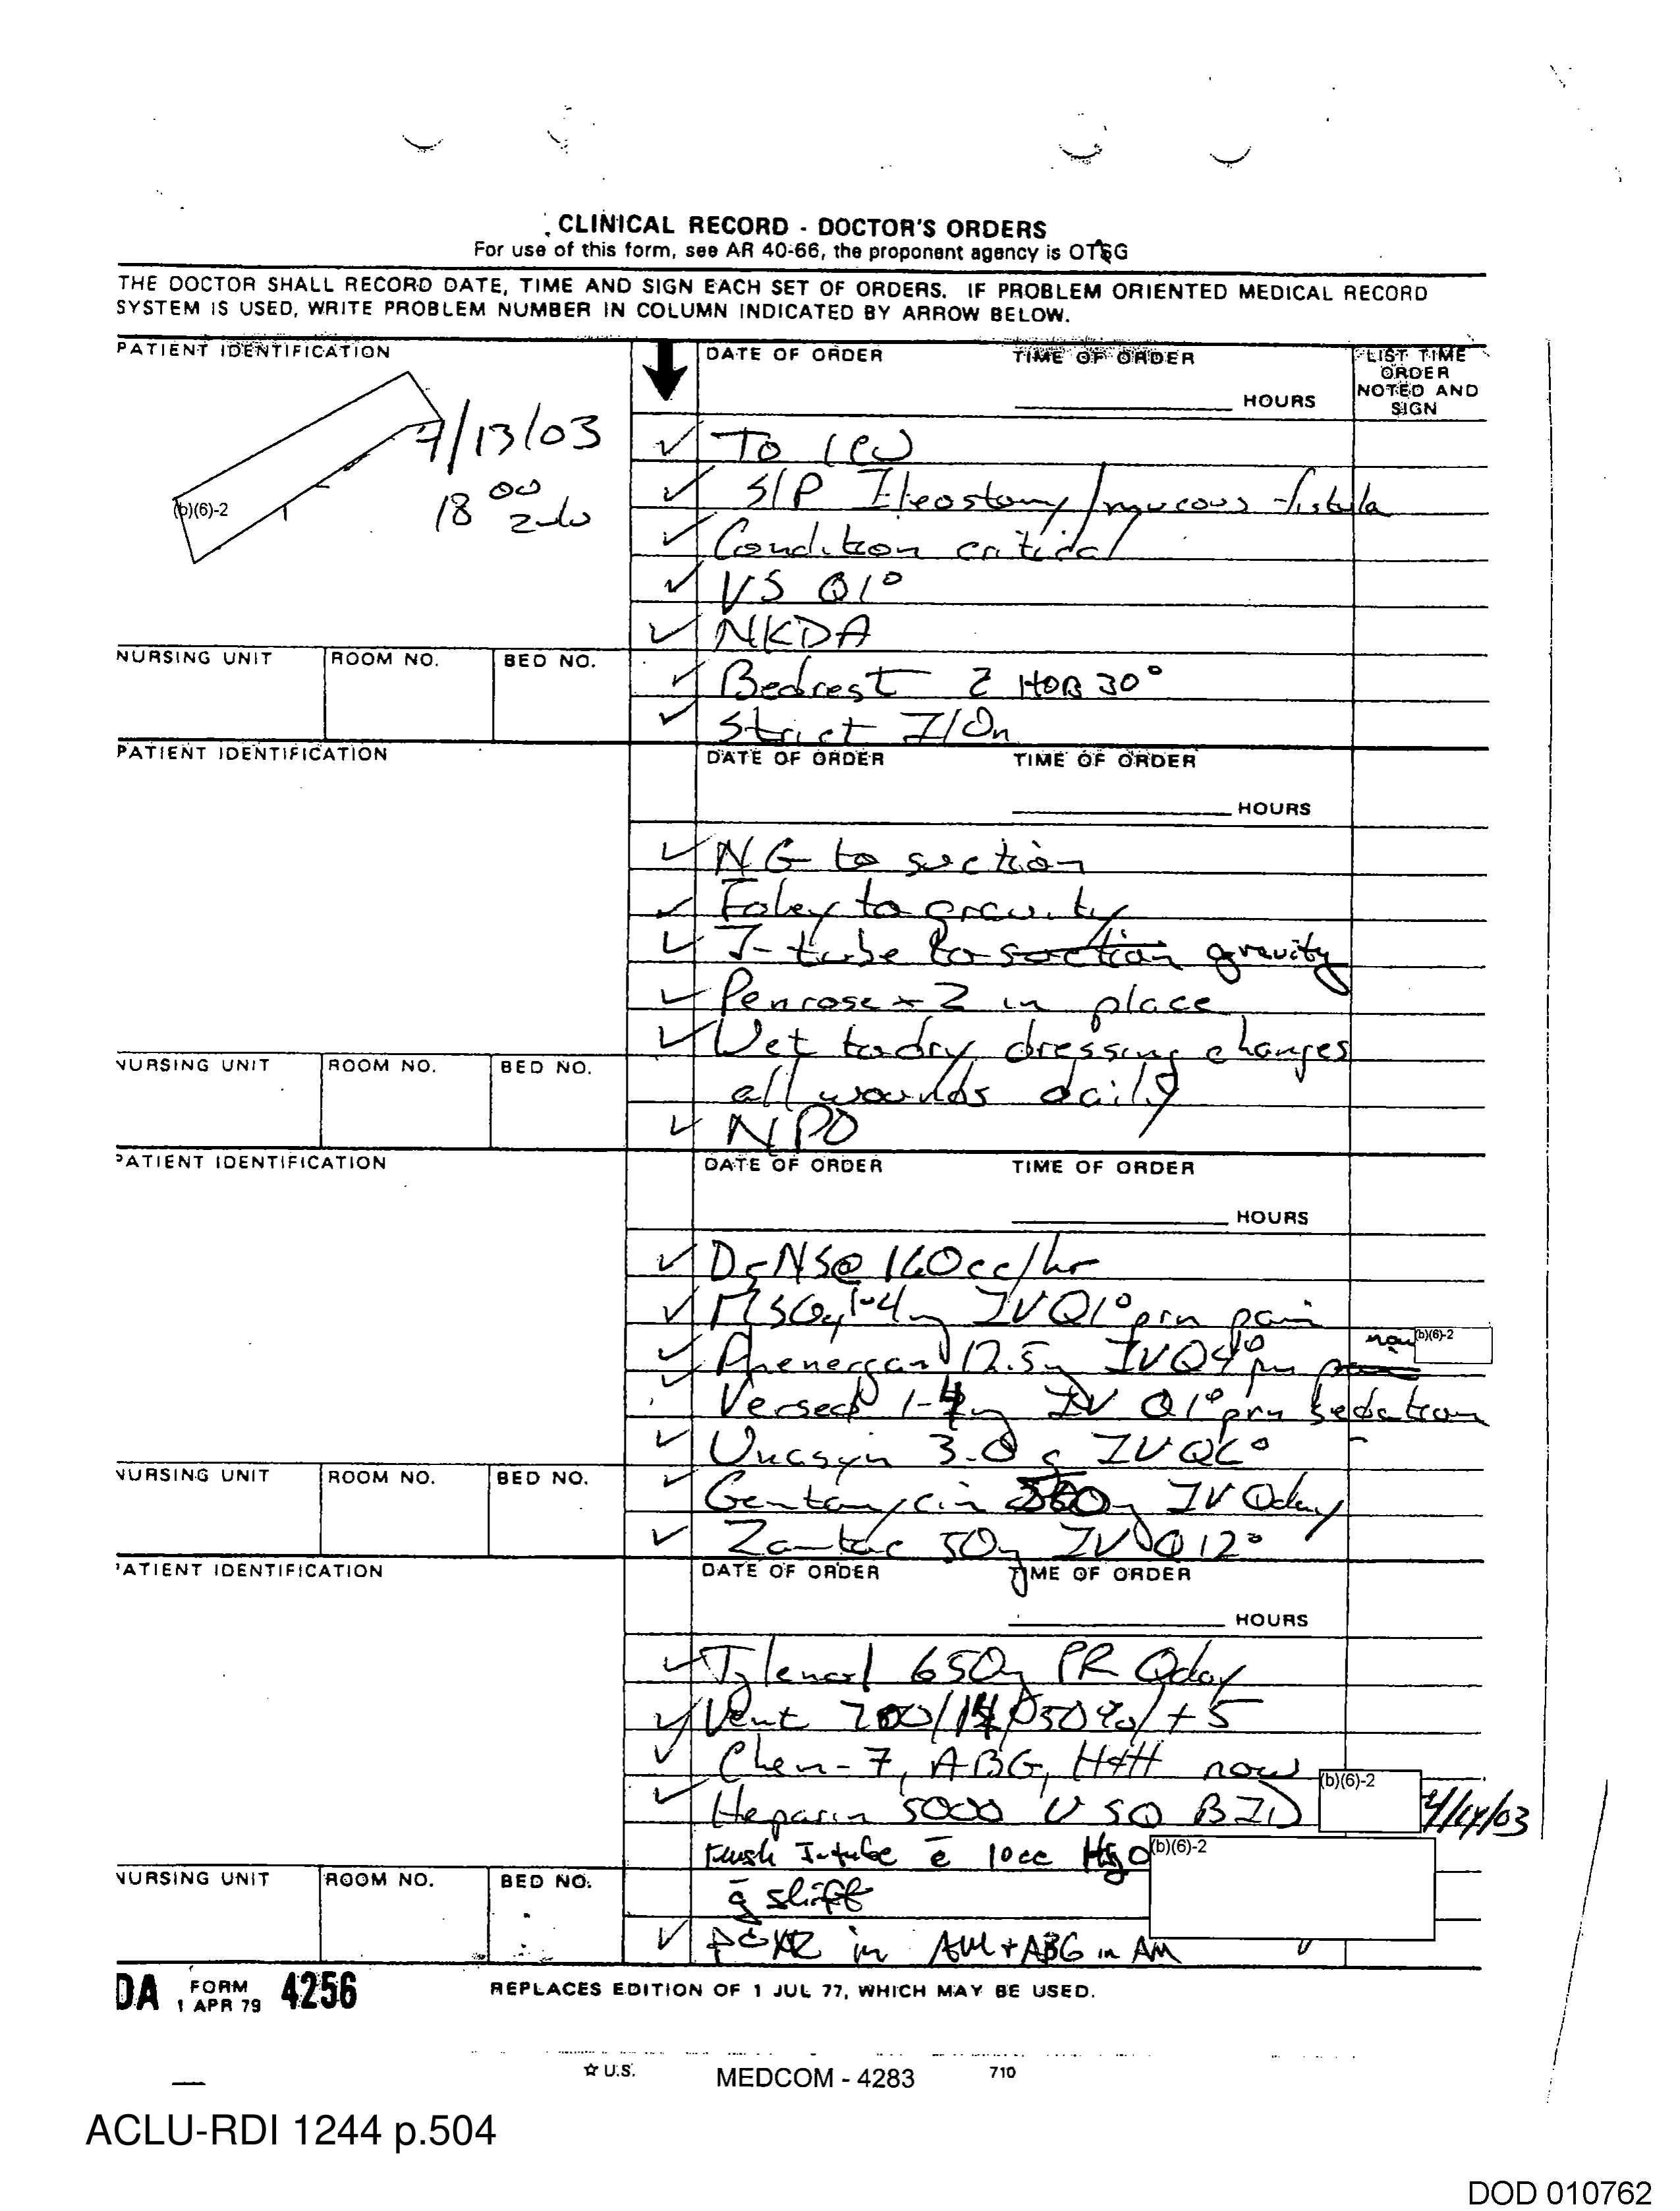 CLINICAL RECORD - DOCTOR'S ORDERS
For use of this form, see AR 40-66, the proponent agency is OTSG
THE DOCTOR SHALL RECORD DATE, TIME AND SIGN EACH SET OF ORDERS. IF PROBLEM ORIENTED MEDICAL RECORD
SYSTEM IS USED, WRITE PROBLEM NUMBER IN COLUMN INDICATED BY ARROW BELOW.
PATIENT IDENTIFICATION
DATE OF ORDER TIME OF ORDER
HOURS
LIST TIME
ORDER
NOTED AND
SIGN
(b)(6)-2
/13/03
18 00
✓ To ICU
✓ S/P Ileostomy/mucous fistula
✓ Condition critical
✓ VS Q1°
✓ NKDA
NURSING UNIT ROOM NO. BED NO.
✓ Bedrest HOB 30°
✓ Strict I/Os
PATIENT IDENTIFICATION
DATE OF ORDER TIME OF ORDER
HOURS
✓ NG to suction
✓ Foley to gravity
✓ J-tube to suction gravity
✓ Penrose x 2 in place
✓ Wet to dry dressing changes
all wounds daily
NURSING UNIT ROOM NO. BED NO.
✓ NPO
PATIENT IDENTIFICATION
DATE OF ORDER TIME OF ORDER
HOURS
✓ D5NS @ 160cc/hr
✓ MSO4 1-4mg IV Q1° prn pain
✓ Phenergan 12.5mg IV Q4° prn
(b)(6)-2
✓ Versed 1-4mg IV Q1° prn sedation
✓ Unasyn 3.0 g IV Q6°
NURSING UNIT ROOM NO. BED NO.
✓ Gentamycin IV Qday
✓ Zantac 50mg IV Q12°
PATIENT IDENTIFICATION
DATE OF ORDER TIME OF ORDER
HOURS
✓ Tylenol 650mg PR Qday
✓ Vent 700/14/50%/+5
✓ Chem-7, ABG, H+H now
✓ Heparin 5000 U SQ BID (b)(6)-2 /14/03
Flush J-tube c̄ 10cc H2O (b)(6)-2
q̄ shift
NURSING UNIT ROOM NO. BED NO.
✓ PCXR in AM + ABG in AM
DA FORM 4256
1 APR 79
REPLACES EDITION OF 1 JUL 77, WHICH MAY BE USED.
☆ U.S.
MEDCOM - 4283
710
ACLU-RDI 1244 p.504
DOD 010762